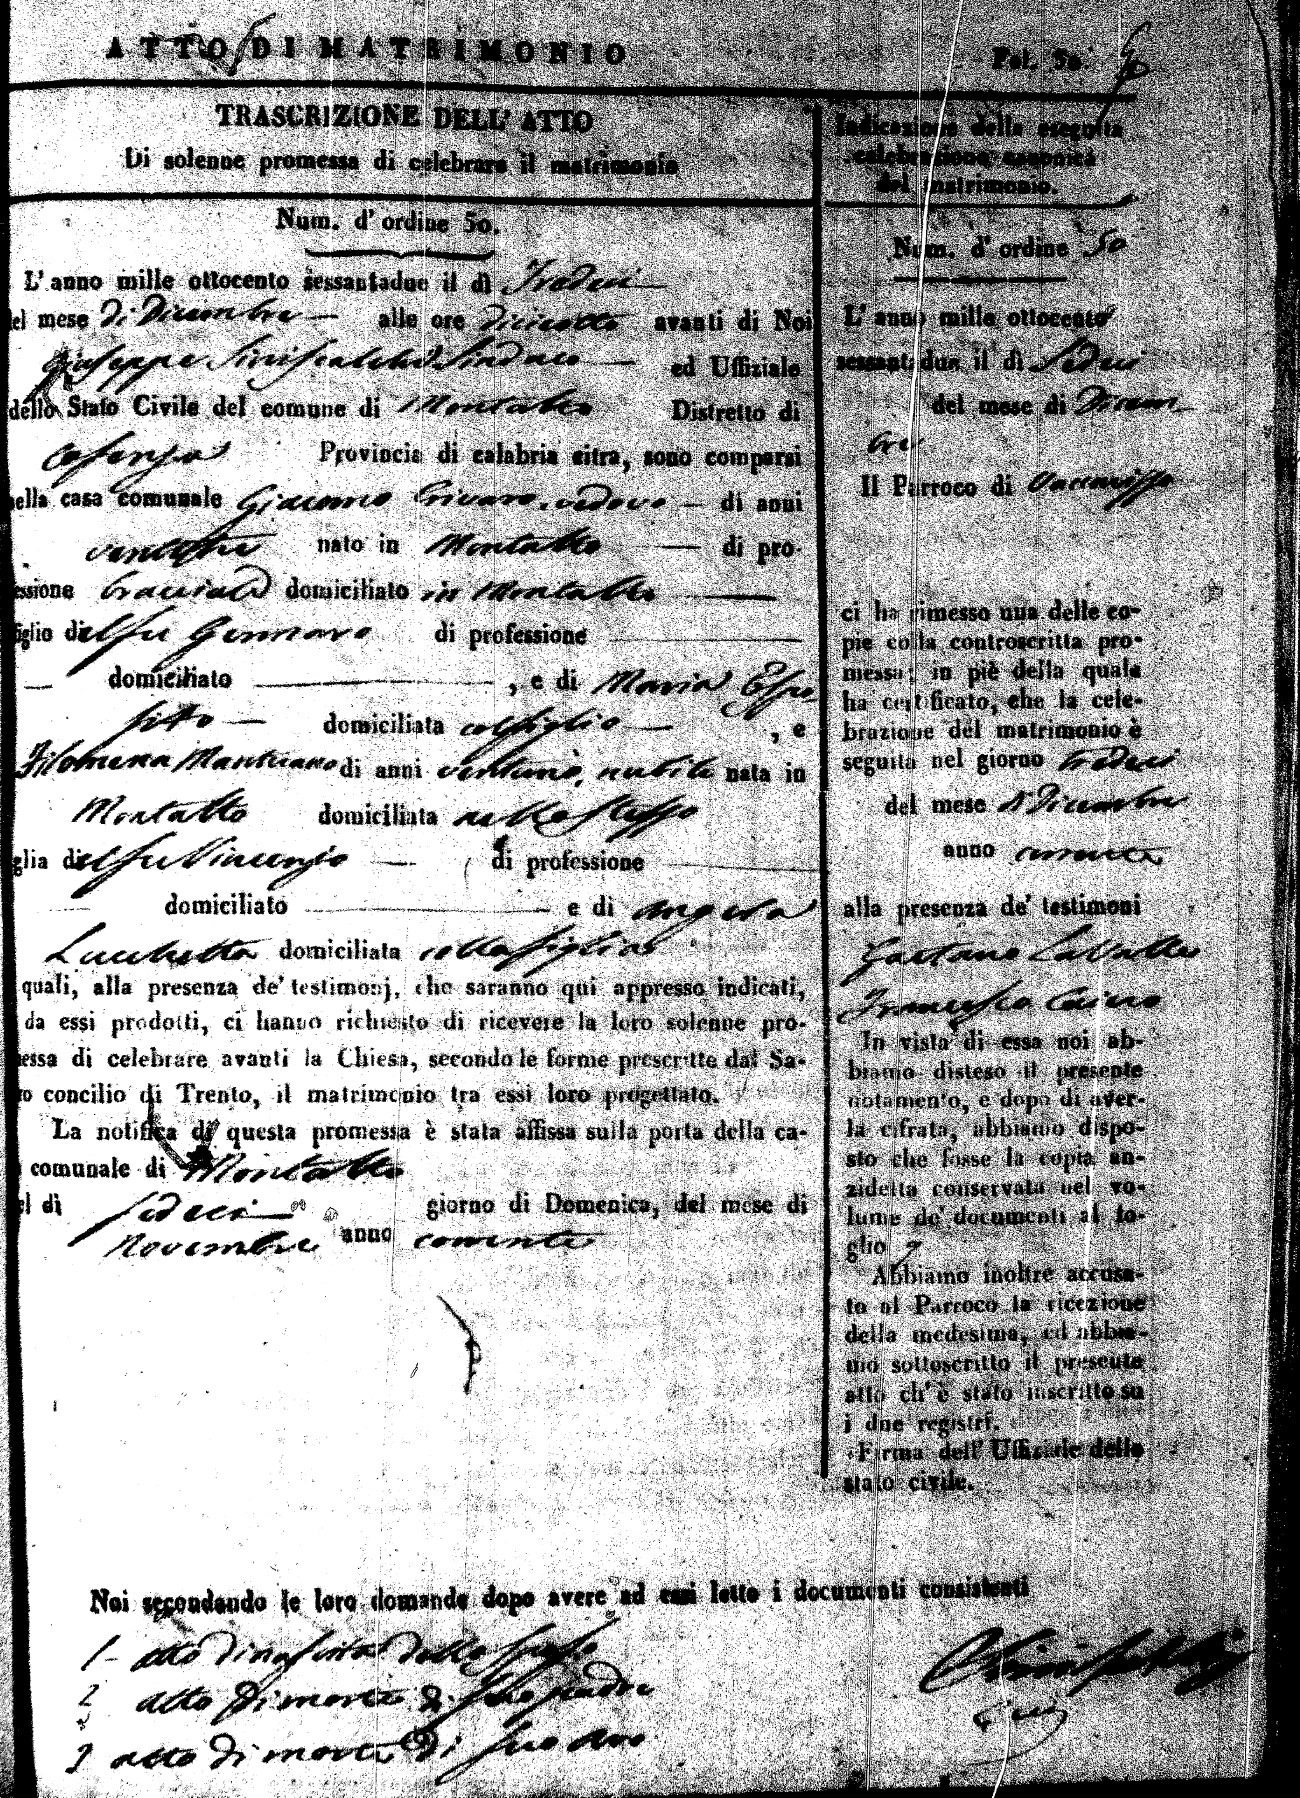 ATTO DI MATRIMONIO
Fol. 50.
TRASCRIZIONE DELL' ATTO
Di solenne promessa di celebrare il matrimonio
Num. d' ordine 50.
L' anno mille ottocento sessantadue il dì Tredici
del mese di Dicembre alle ore diciotto avanti di Noi
Giuseppe Siniscalchi Sindaco ed Uffiziale
dello Stato Civile del comune di Montalto Distretto di
Cosenza Provincia di calabria citra, sono comparsi
nella casa comunale Giacomo Crivaro vedovo di anni
nato in Montalto di pro-
essione bracciale domiciliato in Montalto
figlio del fu Gennaro di professione
domiciliato , e di Maria Espo
sito domiciliata col figlio , e
Filomena Mantuano di anni ventuno, nubile nata in
Montalto domiciliata nello stesso
glia del fu Vincenzo di professione
domiciliato e di Angela
Lucchetta domiciliata colla figlia
quali, alla presenza de' testimonj, che saranno qui appresso indicati,
da essi prodotti, ci hanno richiesto di ricevere la loro solenne pro-
essa di celebrare avanti la Chiesa, secondo le forme prescritte dal Sa-
ro concilio di Trento, il matrimonio tra essi loro progettato.
La notifica di questa promessa è stata affissa sulla porta della ca-
comunale di Montalto
el dì sedeci giorno di Domenica, del mese di
Novembre anno corrente
Indicazione della eseguita
celebrazione canonica
del matrimonio.
Num. d' ordine 50
L' anno mille ottocento
sessantadue il dì Sedeci
del mese di Dicem
bre
Il Parroco di Vaccarizzo
ci ha rimesso una delle co-
pie colla controscritta pro-
messa; in piè della quale
ha certificato, che la cele-
brazione del matrimonio è
seguita nel giorno tredeci
del mese di Dicembre
anno corrente
alla presenza de' testimoni
Gaetano La Valle
Francesco Cairo
In vista di essa noi ab-
biamo disteso il presente
notamento, e dopo di aver-
la cifrata, abbiamo dispo-
sto che fosse la copia an-
zidetta conservata nel vo-
lume de' documenti al fo-
glio
Abbiamo inoltre accusa-
to al Parroco la ricezione
della medesima, ed abbia-
mo sottoscritto il presente
atto ch' è stato inscritto su
i due registri.
Firma dell' Uffiziale dello
stato civile.
Noi secondando le loro domande dopo avere ad essi letto i documenti consistenti
1 - atto di nascita dello sposo
2 atto di morte di suo padre
3 atto di morte di suo avo